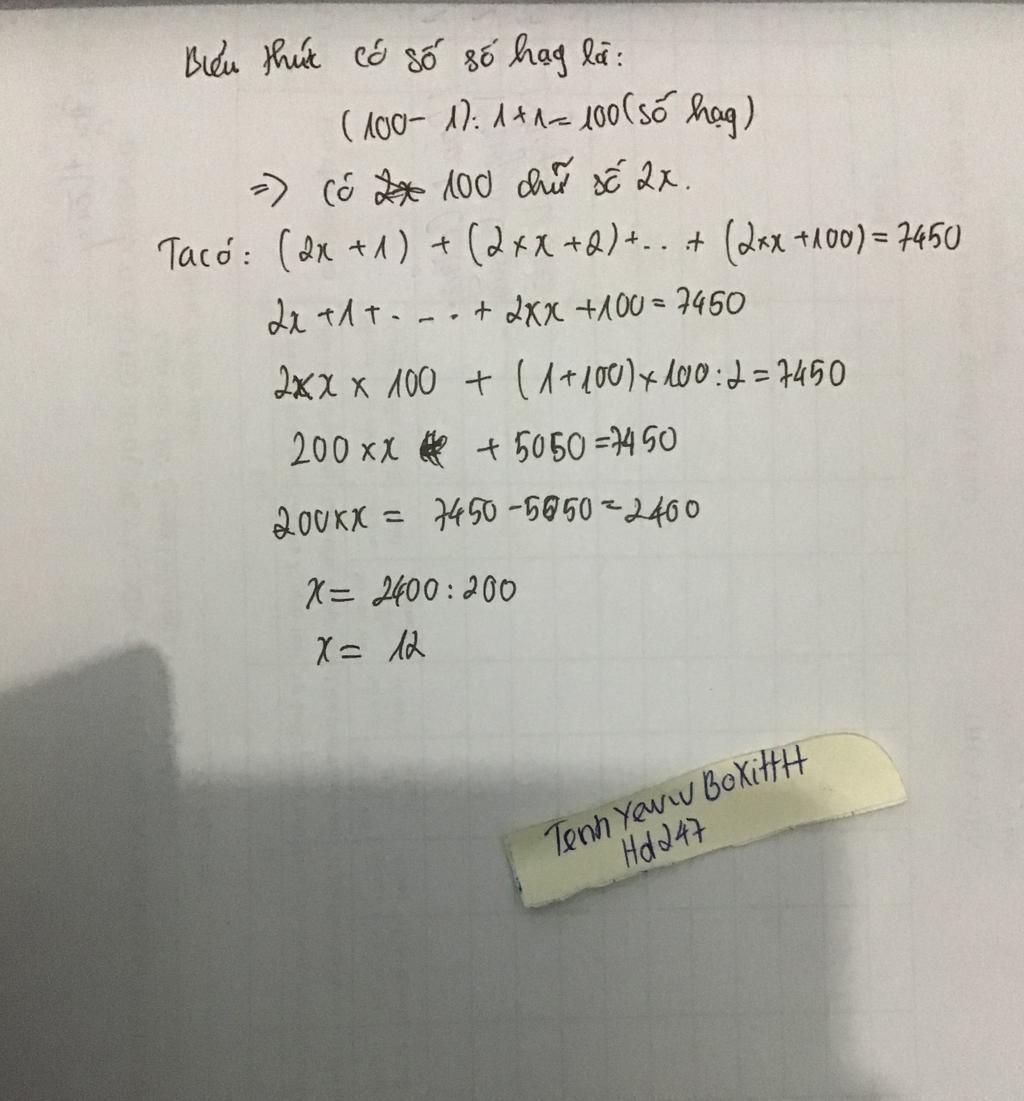 Biểu thức có số số hạg là:
(100 - 1): 1 + 1 = 100 (số hạg)
=> có 100 chữ số 2x.
Ta có: (2x + 1) + (2 × x + 2) + .. + (2 × x + 100) = 7450
2x + 1 + . - - . + 2 × x + 100 = 7450
2 × x × 100 + (1 + 100) × 100 : 2 = 7450
200 × x + 5050 = 7450
200 × x = 7450 - 5050 = 2400
x = 2400 : 200
x = 12
Tenh Yewu BoXiHH
Hd247